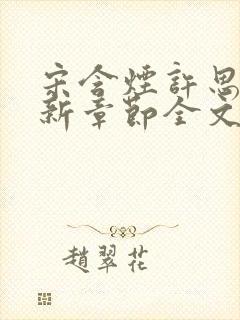 宋含煙許思
新章節全文
趙翠花